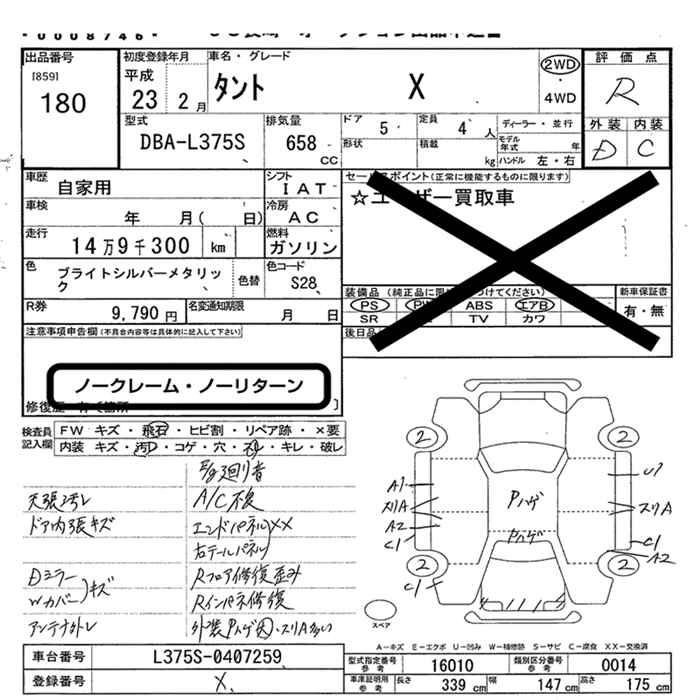 出品番号
[859]
180
初度登録年月
平成
23 2月
車名・グレード
タント X
2WD
・
4WD
評価点
R
外装 内装
D C
型式
DBA-L375S
排気量
658
cc
ドア
5
定員
4 人
形状
積載
kg
ディーラー・並行
モデル年式 年
ハンドル 左・右
車歴
自家用
シフト
IAT
車検
年 月( 日)
冷房
AC
走行
14万9千300 km
燃料
ガソリン
色
ブライトシルバーメタリック
色替
色コード
S28
R券
9,790 円
名変通知期限
月 日
セールスポイント(正常に機能するものに限ります)
☆ユーザー買取車
装備品
PS PW ABS エアB
SR TV カワ
新車保証書
有・無
後日品
注意事項申告欄(不具合内容等は具体的に記入して下さい)
ノークレーム・ノーリターン
検査員記入欄
FW キズ・飛石・ヒビ割・リペア跡・×要
内装 キズ・汚レ・コゲ・穴・スレ・キレ・破レ
天張汚レ
A/C不良
ドア内張キズ
エンドパネルXX
右テールパネル
Dミラー
Wカバー キズ
Rフロア修復歪み
Rインパネ修復
アンテナ外レ
外装Pハゲ大、スリA多い
2 2
A1
スリA
A2
C1
U1
スリA
C1
A2
Pハゲ
Pハゲ
2 2
C1
スペア
A-キズ E-エクボ U-凹み W-補修跡 S-サビ C-腐食 XX-交換済
車台番号
L375S-0407259
登録番号
X
型式指定番号 参考
16010
類別区分番号 参考
0014
車庫証明用 参考
長さ
339 cm
幅
147 cm
高さ
175 cm